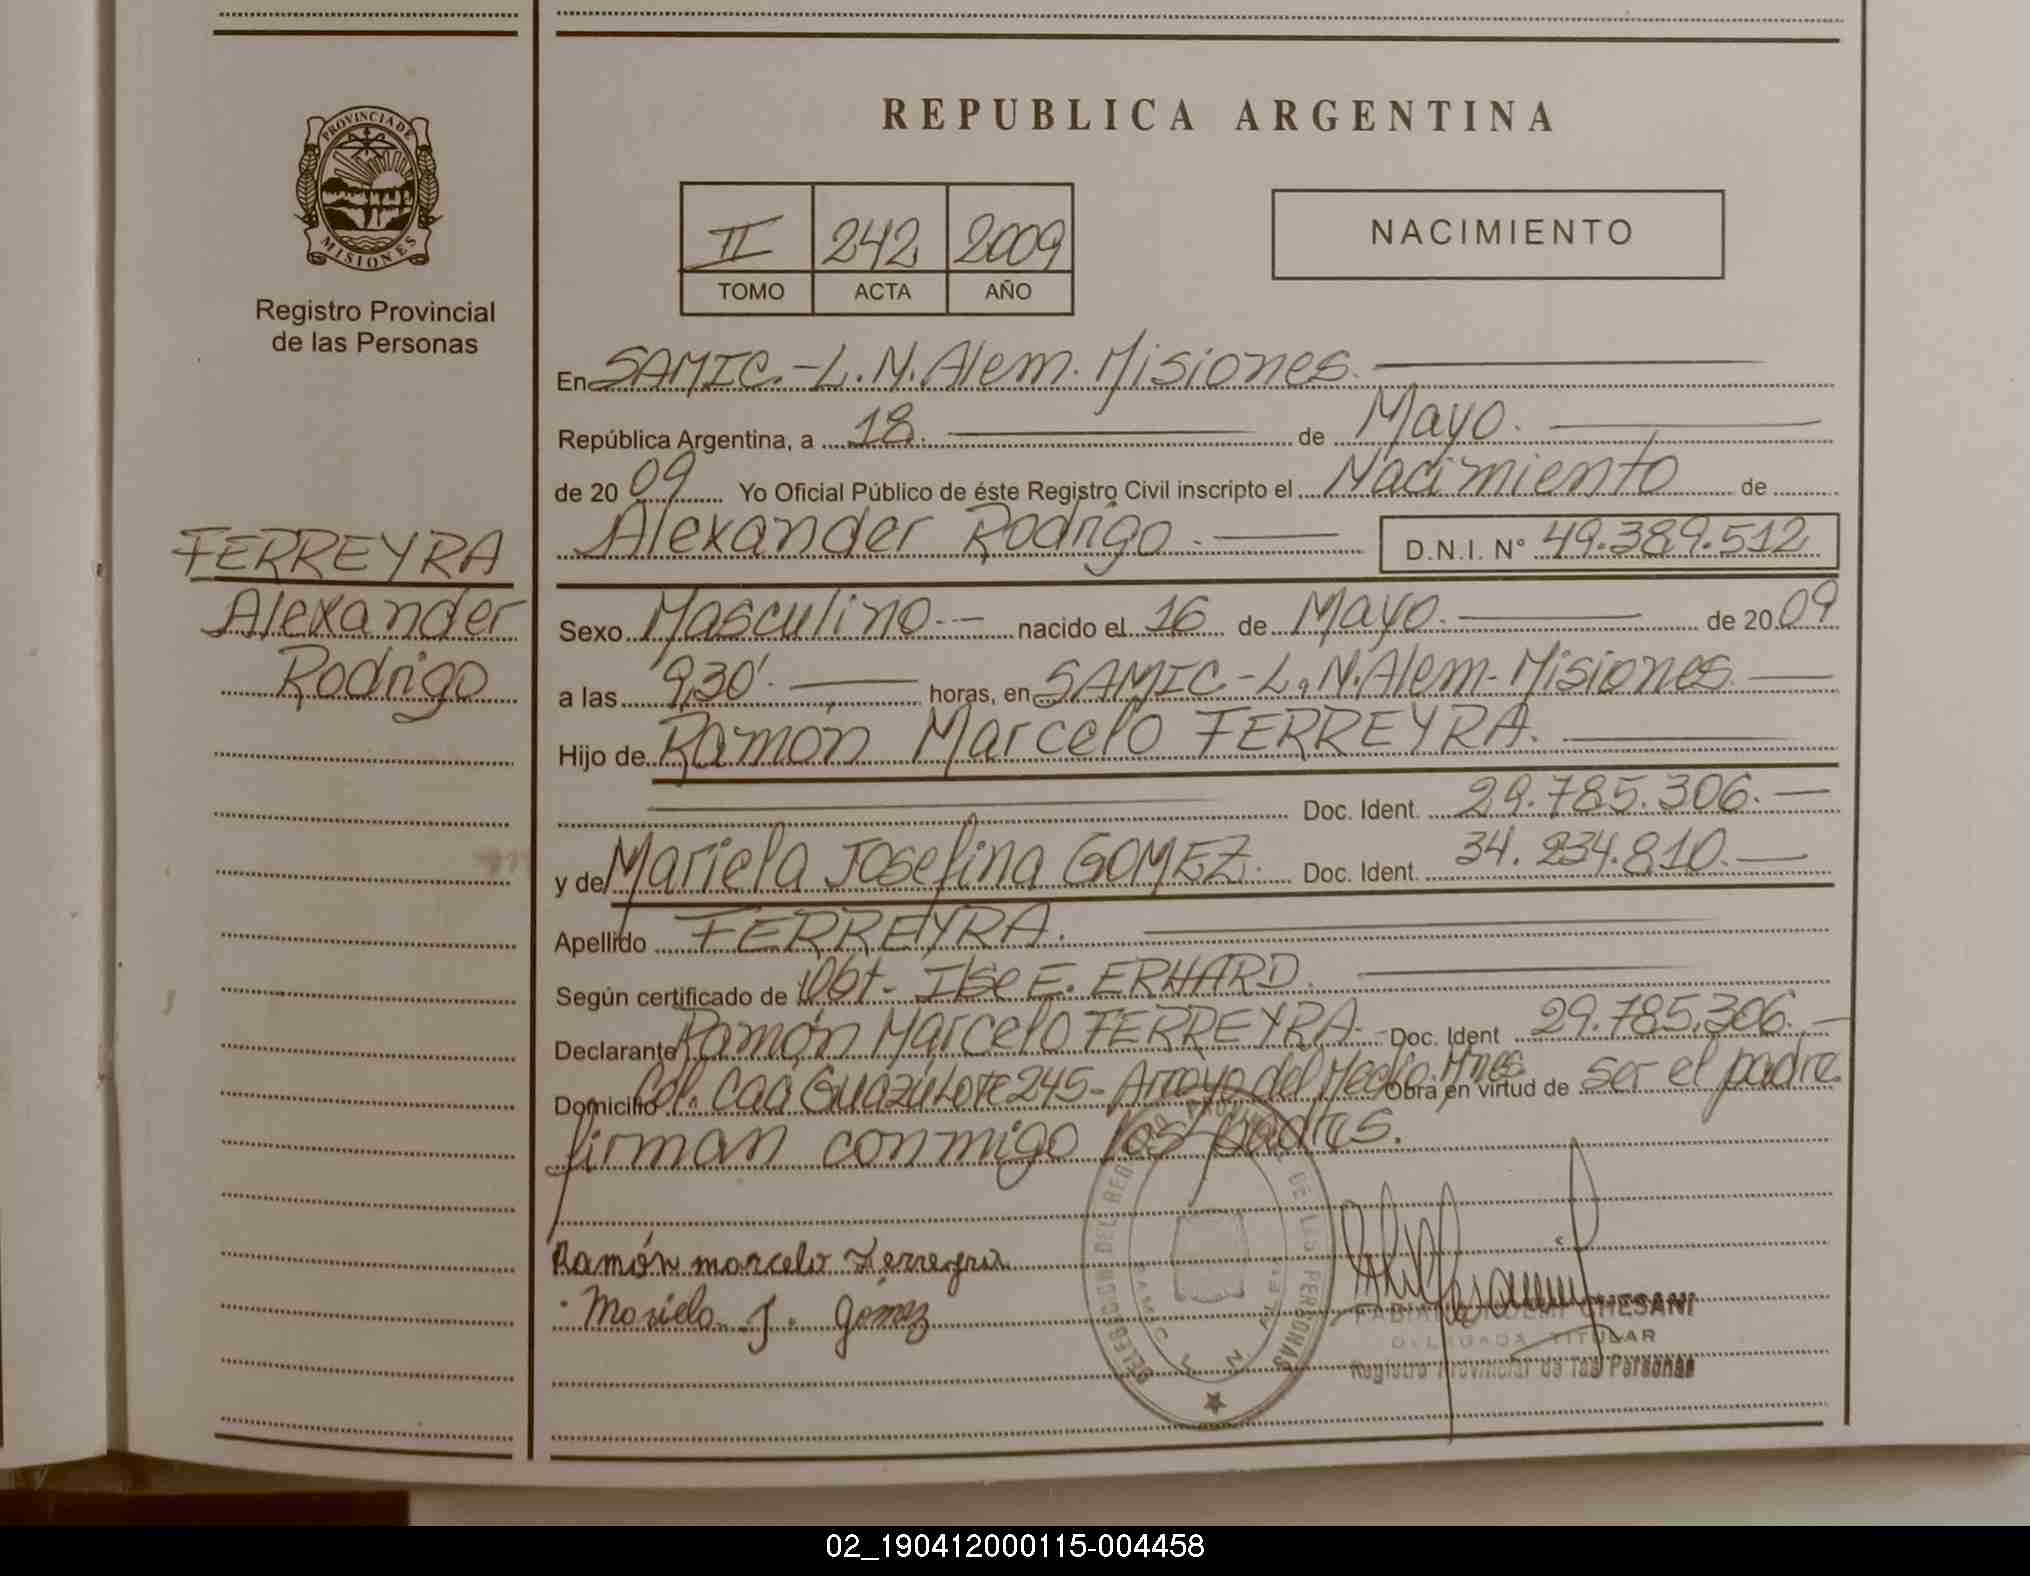 PROVINCIA DE
MISIONES
Registro Provincial
de las Personas
FERREYRA
Alexander
Rodrigo
REPUBLICA ARGENTINA
II 242 2009
TOMO ACTA AÑO
NACIMIENTO
En SAMIC.-L.N.Alem. Misiones.
República Argentina, a 18. de Mayo.
de 2009 Yo Oficial Público de éste Registro Civil inscripto el Nacimiento de
Alexander Rodrigo. D.N.I. N° 49.389.512
Sexo Masculino.-- nacido el 16 de Mayo. de 2009
a las 9,30'. horas, en SAMIC-L.N.Alem-Misiones
Hijo de Ramón Marcelo FERREYRA.
Doc. Ident. 29.785.306.—
y de Mariela Josefina GOMEZ. Doc. Ident. 34.234.810.—
Apellido FERREYRA.
Según certificado de Obt- Ilse E. ERHARD.
Declarante Ramón Marcelo FERREYRA.- Doc. Ident 29.785.306.—
Domicilio Col. Caá Guazú Lote 245-Arroyo del Medio. Mnes Obra en virtud de ser el padre
firman conmigo los padres.
Ramón marcelo Ferreyra
Mariela J. Gómez
DE LAS PERSONAS
DELEGACION DEL REG
DELEGADA TITULAR
Registro Provincial de las Personas
02_190412000115-004458